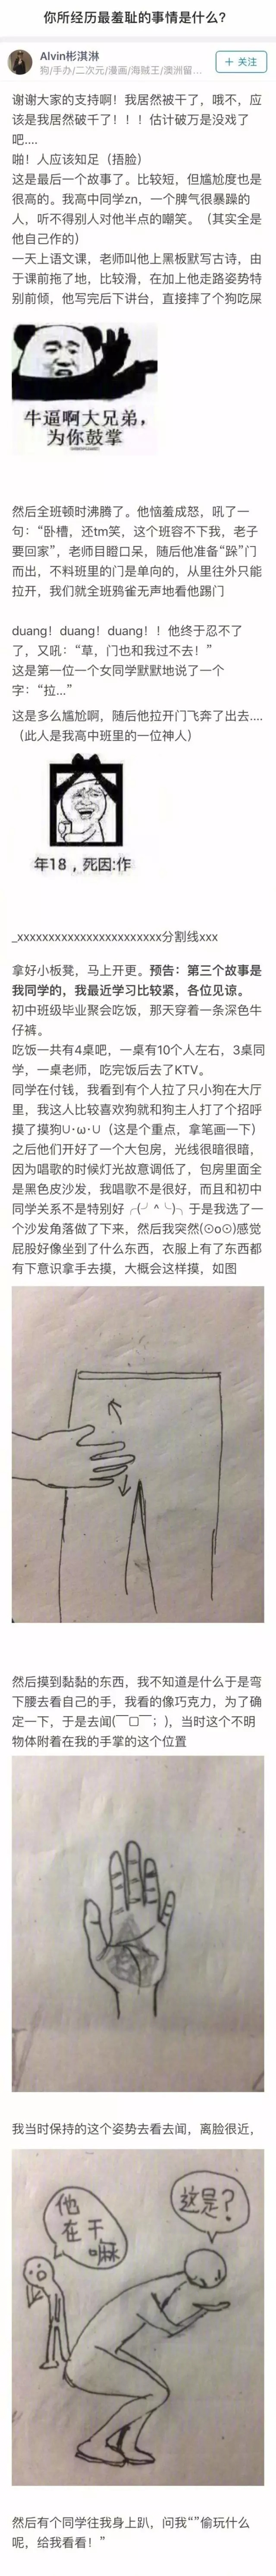 你所经历最羞耻的事情是什么？
Alvin彬淇淋
狗/手办/二次元/漫画/海贼王/澳洲留...
+ 关注
谢谢大家的支持啊！我居然被干了，哦不，应
该是我居然破千了！！！估计破万是没戏了
吧....
啪！人应该知足（捂脸）
这是最后一个故事了。比较短，但尴尬度也是
很高的。我高中同学zn，一个脾气很暴躁的
人，听不得别人对他半点的嘲笑。（其实全是
他自己作的）
一天上语文课，老师叫他上黑板默写古诗，由
于课前拖了地，比较滑，在加上他走路姿势特
别前倾，他写完后下讲台，直接摔了个狗吃屎
牛逼啊大兄弟，
为你鼓掌
然后全班顿时沸腾了。他恼羞成怒，吼了一
句：“卧槽，还tm笑，这个班容不下我，老子
要回家”，老师目瞪口呆，随后他准备“跺”门
而出，不料班里的门是单向的，从里往外只能
拉开，我们就全班鸦雀无声地看他踢门
duang！duang！duang！！他终于忍不了
了，又吼：“草，门也和我过不去！”
这是第一位一个女同学默默地说了一个
字：“拉...”
这是多么尴尬啊，随后他拉开门飞奔了出去....
（此人是我高中班里的一位神人）
年18，死因:作
_xxxxxxxxxxxxxxxxxxxxxxx分割线xxx
拿好小板凳，马上开更。预告：第三个故事是
我同学的，我最近学习比较紧，各位见谅。
初中班级毕业聚会吃饭，那天穿着一条深色牛
仔裤。
吃饭一共有4桌吧，一桌有10个人左右，3桌同
学，一桌老师，吃完饭后去了KTV。
同学在付钱，我看到有个人拉了只小狗在大厅
里，我这人比较喜欢狗就和狗主人打了个招呼
摸了摸狗∪･ω･∪（这是个重点，拿笔画一下）
之后他们开好了一个大包房，光线很暗很暗，
因为唱歌的时候灯光故意调低了，包房里面全
是黑色皮沙发，我唱歌不是很好，而且和初中
同学关系不是特别好╭(╯^╰)╮于是我选了一
个沙发角落做了下来，然后我突然(⊙o⊙)感觉
屁股好像坐到了什么东西，衣服上有了东西都
有下意识拿手去摸，大概会这样摸，如图
然后摸到黏黏的东西，我不知道是什么于是弯
下腰去看自己的手，我看的像巧克力，为了确
定一下，于是去闻(￣▢￣；)，当时这个不明
物体附着在我的手掌的这个位置
我当时保持的这个姿势去看去闻，离脸很近，
他
在干
嘛
这是？
然后有个同学往我身上趴，问我“”偷玩什么
呢，给我看看！”